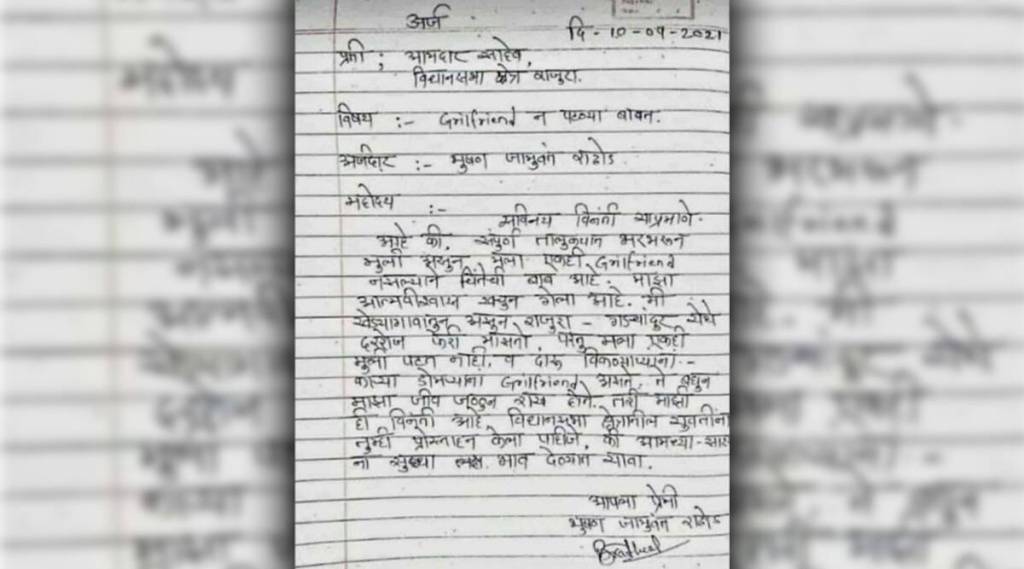 अर्ज
दि - 10-09-2021
प्रती ; आमदार साहेब,
विधानसभा क्षेत्र राजुरा.
विषय :- Grilfriend न पटण्या बाबत.
अर्जदार :- भुषण जांबुवंत राठोड.
महोदय :-
सविनय विनंती याप्रमाणे.
आहे की. संपुर्ण तालुक्यात भरभरून
मुली असुन, मला एकही. Grilfriend
नसल्याने चिंतेची बाब आहे. माझा
आत्मवीश्वास खचुन गेला आहे. मी
खेड्यागावातुन असुन राजुरा - गडचांदुर येथे
दररोज फेरी मारतो. परंतु मला एकही
मुली पटत नाही. व दारू विकणाऱ्याना -
काऱ्या डोमऱ्याना Grilfriend असते. ते बघुन
माझा जीव जळुन राख होते. तरी माझी
ही विनंती आहे. विधानसभा क्षेत्रातील युवतींना
तुम्ही प्रोस्ताहन केला पाहीजे. की आमच्या-सार
ना सुध्धा भाव देण्यात यावा.
आपला प्रेमी
भुषण जांबुवंत राठोड